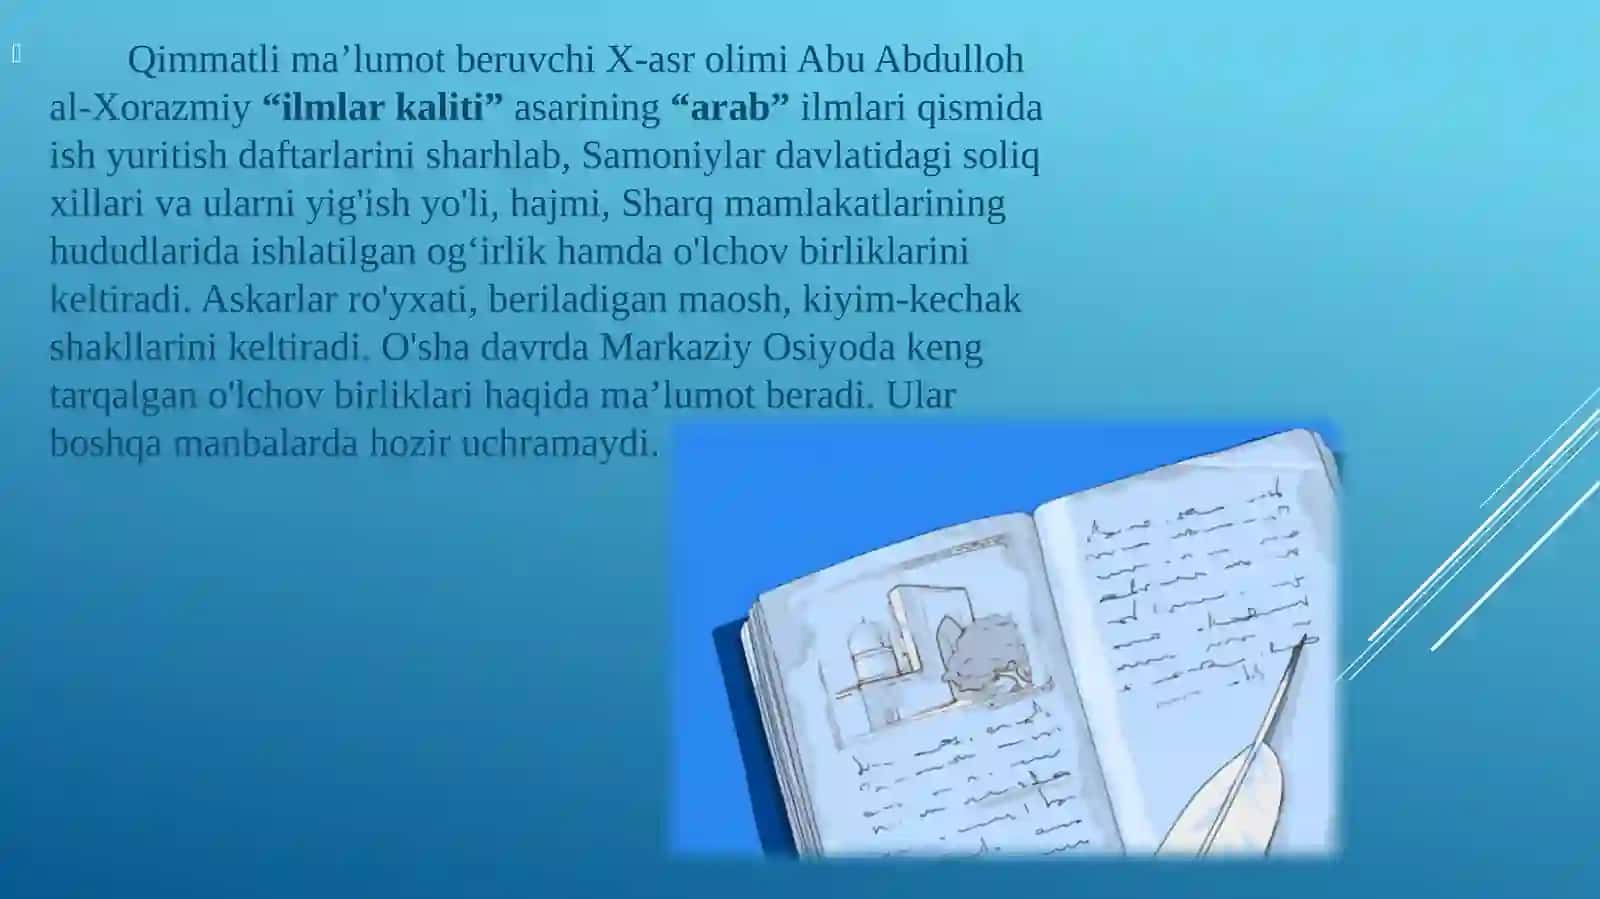 Qimmatli ma’lumot beruvchi X-asr olimi Abu Abdulloh
al-Xorazmiy “ilmlar kaliti” asarining “arab” ilmlari qismida
ish yuritish daftarlarini sharhlab, Samoniylar davlatidagi soliq
xillari va ularni yig'ish yo'li, hajmi, Sharq mamlakatlarining
hududlarida ishlatilgan og‘irlik hamda o'lchov birliklarini
keltiradi. Askarlar ro'yxati, beriladigan maosh, kiyim-kechak
shakllarini keltiradi. O'sha davrda Markaziy Osiyoda keng
tarqalgan o'lchov birliklari haqida ma’lumot beradi. Ular
boshqa manbalarda hozir uchramaydi.